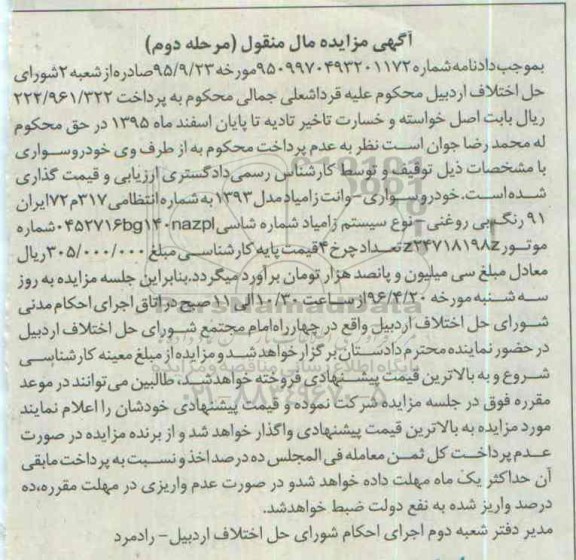 آگهی مزایده مال منقول (مرحله دوم)
بموجب دادنامه شماره ۹۵۰۹۹۷۰۴۹۳۲۰۱۱۷۲ مورخه ۹۵/۹/۲۳ صادره از شعبه ۲ شورای
حل اختلاف اردبیل محکوم علیه قرداشعلی جمالی محکوم به پرداخت ۲۲۲/۹۶۱/۳۲۲
ریال بابت اصل خواسته و خسارت تاخیر تادیه تا پایان اسفند ماه ۱۳۹۵ در حق محکوم
له محمد رضا جوان است نظر به عدم پرداخت محکوم به از طرف وی خودروسواری
با مشخصات ذیل توقیف و توسط کارشناس رسمی دادگستری ارزیابی و قیمت گذاری
شده است. خودرو سواری -وانت زامیاد مدل ۱۳۹۳ به شماره انتظامی ۳۱۷م۷۲ ایران
۹۱ رنگ بی روغنی - نوع سیستم زامیاد شماره شاسی nazpl۱۴۰bg۰۴۵۲۷۱۶ شماره
موتور z۲۴۷۱۸۱۹۸z تعداد چرخ ۴ قیمت پایه کارشناسی مبلغ ۳۰۵/۰۰۰/۰۰۰ ریال
معادل مبلغ سی میلیون و پانصد هزار تومان برآورد میگردد. بنابراین جلسه مزایده به روز
سه شنبه مورخه ۹۶/۴/۲۰ از ساعت ۱۰/۳۰ الی ۱۱ صبح در اتاق اجرای احکام مدنی
شورای حل اختلاف اردبیل واقع در چهارراه امام مجتمع شورای حل اختلاف اردبیل
در حضور نماینده محترم دادستان برگزار خواهد شد و مزایده از مبلغ معینه کارشناسی
شروع و به بالاترین قیمت پیشنهادی فروخته خواهد شد. طالبین می توانند در موعد
مقرره فوق در جلسه مزایده شرکت نموده و قیمت پیشنهادی خودشان را اعلام نمایند
مورد مزایده به بالاترین قیمت پیشنهادی واگذار خواهد شد و از برنده مزایده در صورت
عدم پرداخت کل ثمن معامله فی المجلس ده درصد اخذ و نسبت به پرداخت مابقی
آن حداکثر یک ماه مهلت داده خواهد شد و در صورت عدم واریزی در مهلت مقرره، ده
درصد واریز شده به نفع دولت ضبط خواهد شد.
مدیر دفتر شعبه دوم اجرای احکام شورای حل اختلاف اردبیل - رادمرد